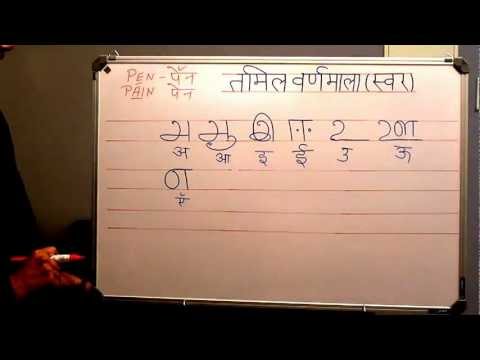 PEN - पॅन
PAIN पेन
तमिल वर्णमाला (स्वर)
அ ஆ இ ஈ உ ஊ
अ आ इ ई उ ऊ
எ
ऍ